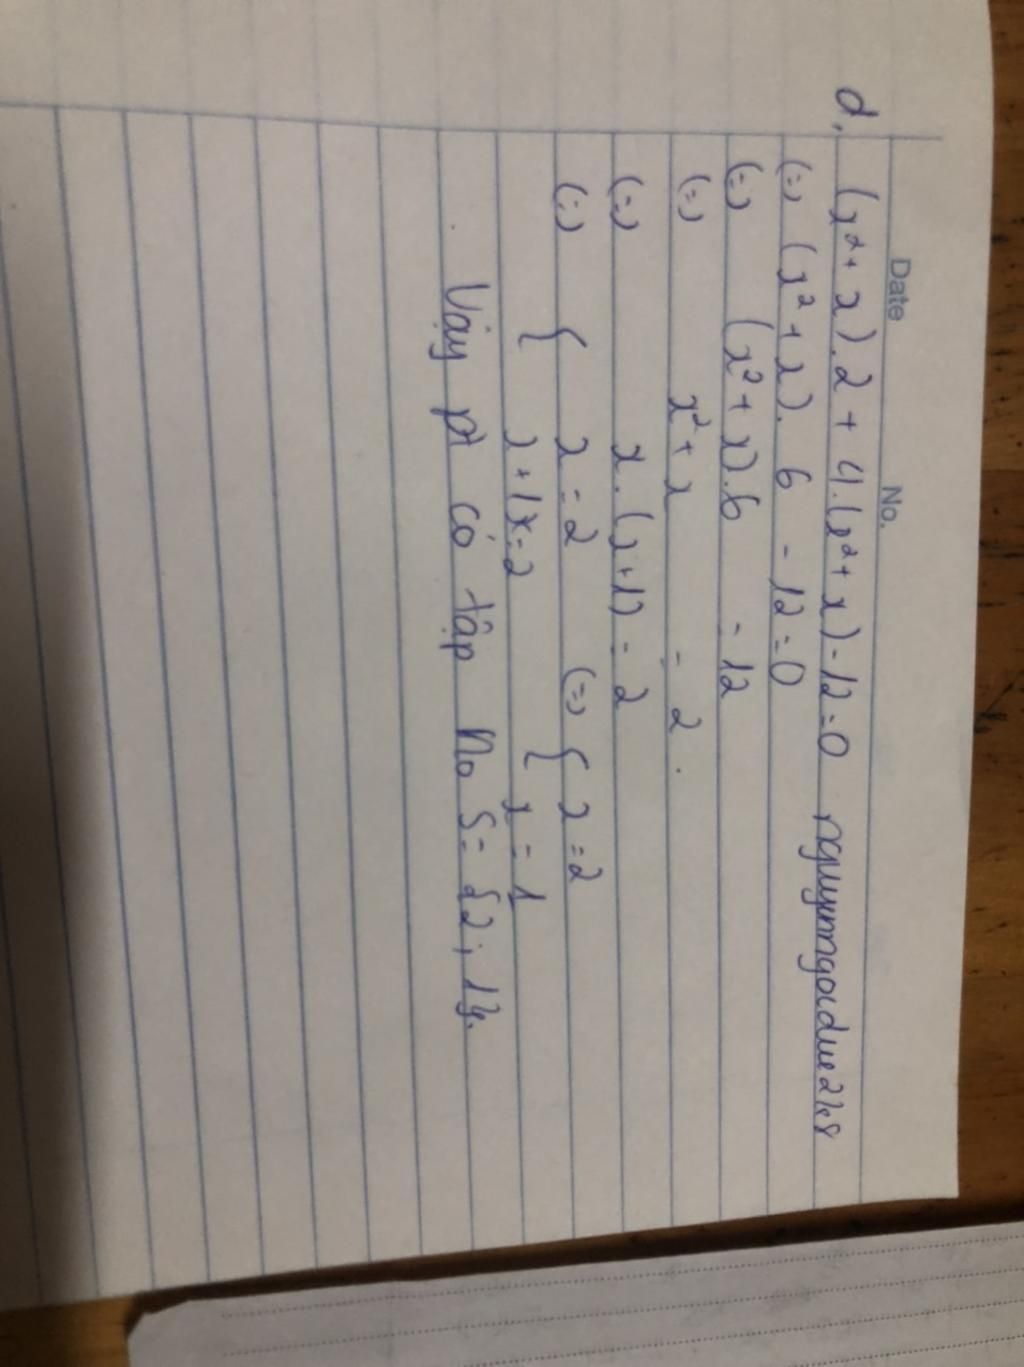 Date No.
d, (x²+x).2+4.(x²+x)-12=0 nguyenngocdue2k8
(=) (x²+x).6 -12=0
(=) (x²+x).6 = 12
(=) x²+x = 2.
(=) x.(x+1) = 2
(=) { x=2 (=) { x=2
{ x+1=2 { x=1
Vậy pt có tập No S={2;1}.